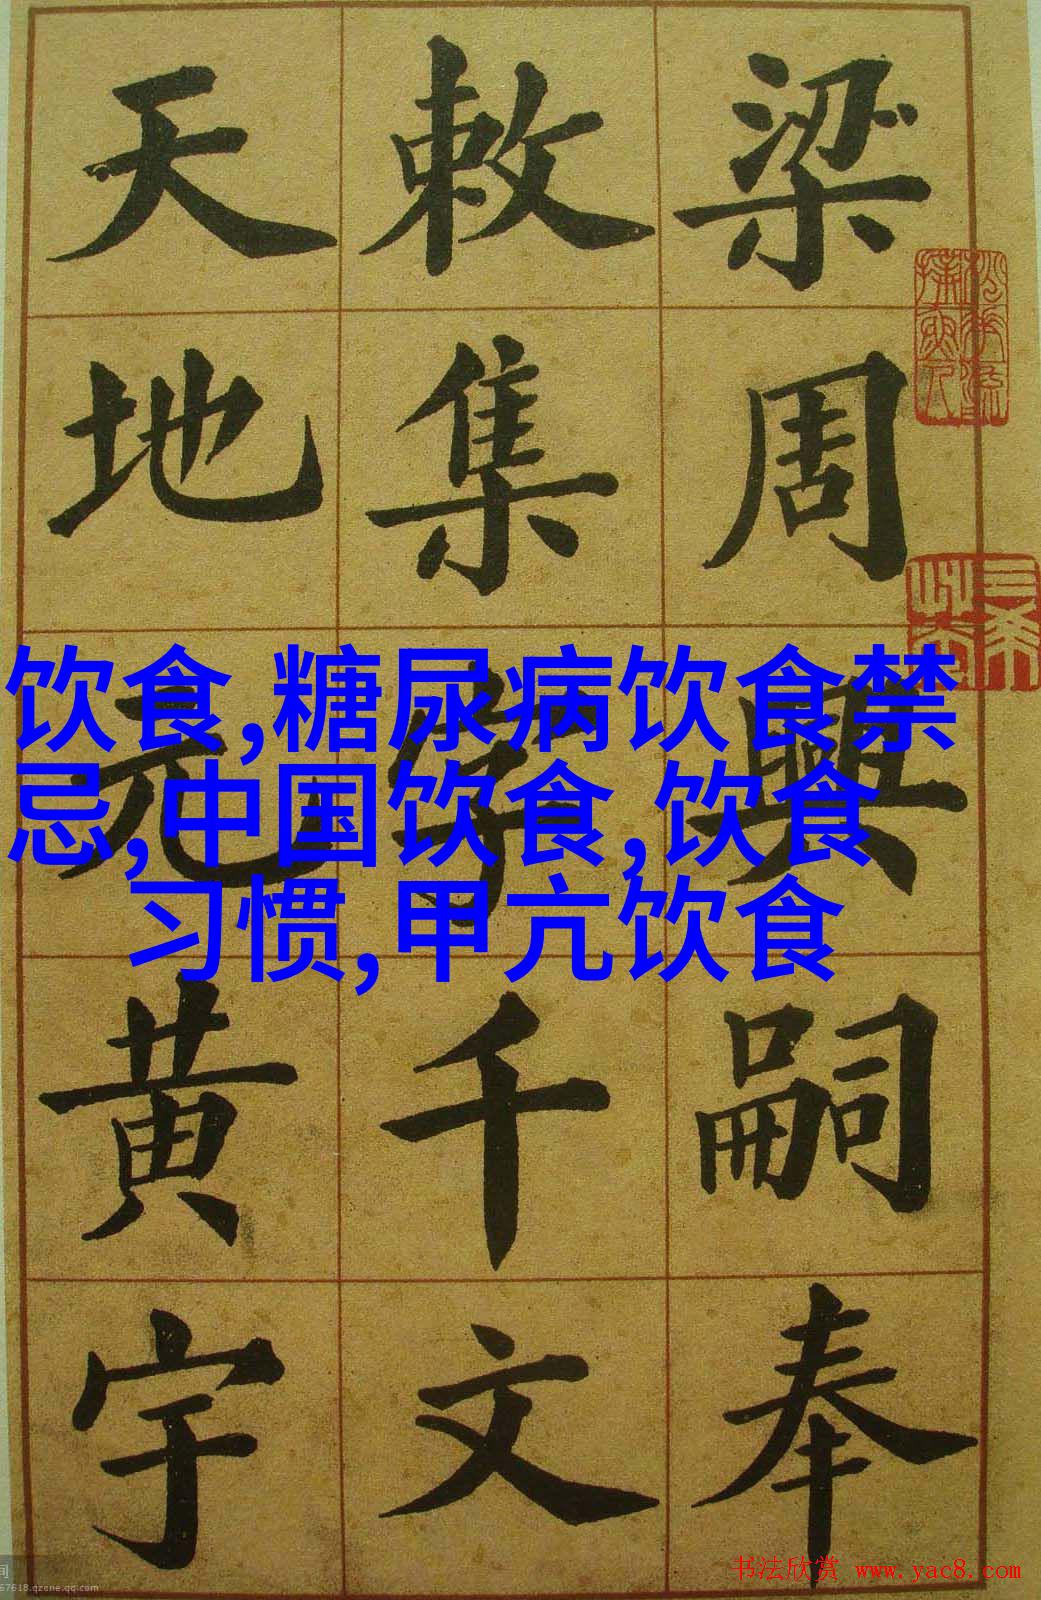 梁周興嗣奉
敕集字千文
天地元黄宇
饮食,糖尿病饮食禁
忌,中国饮食,饮食
习惯,甲亢饮食
书法欣赏 www.yac8.com
间
67618.qzone.qq.com